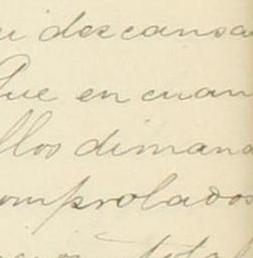 descansa
que en cuan
llos dimana
omprolados
total